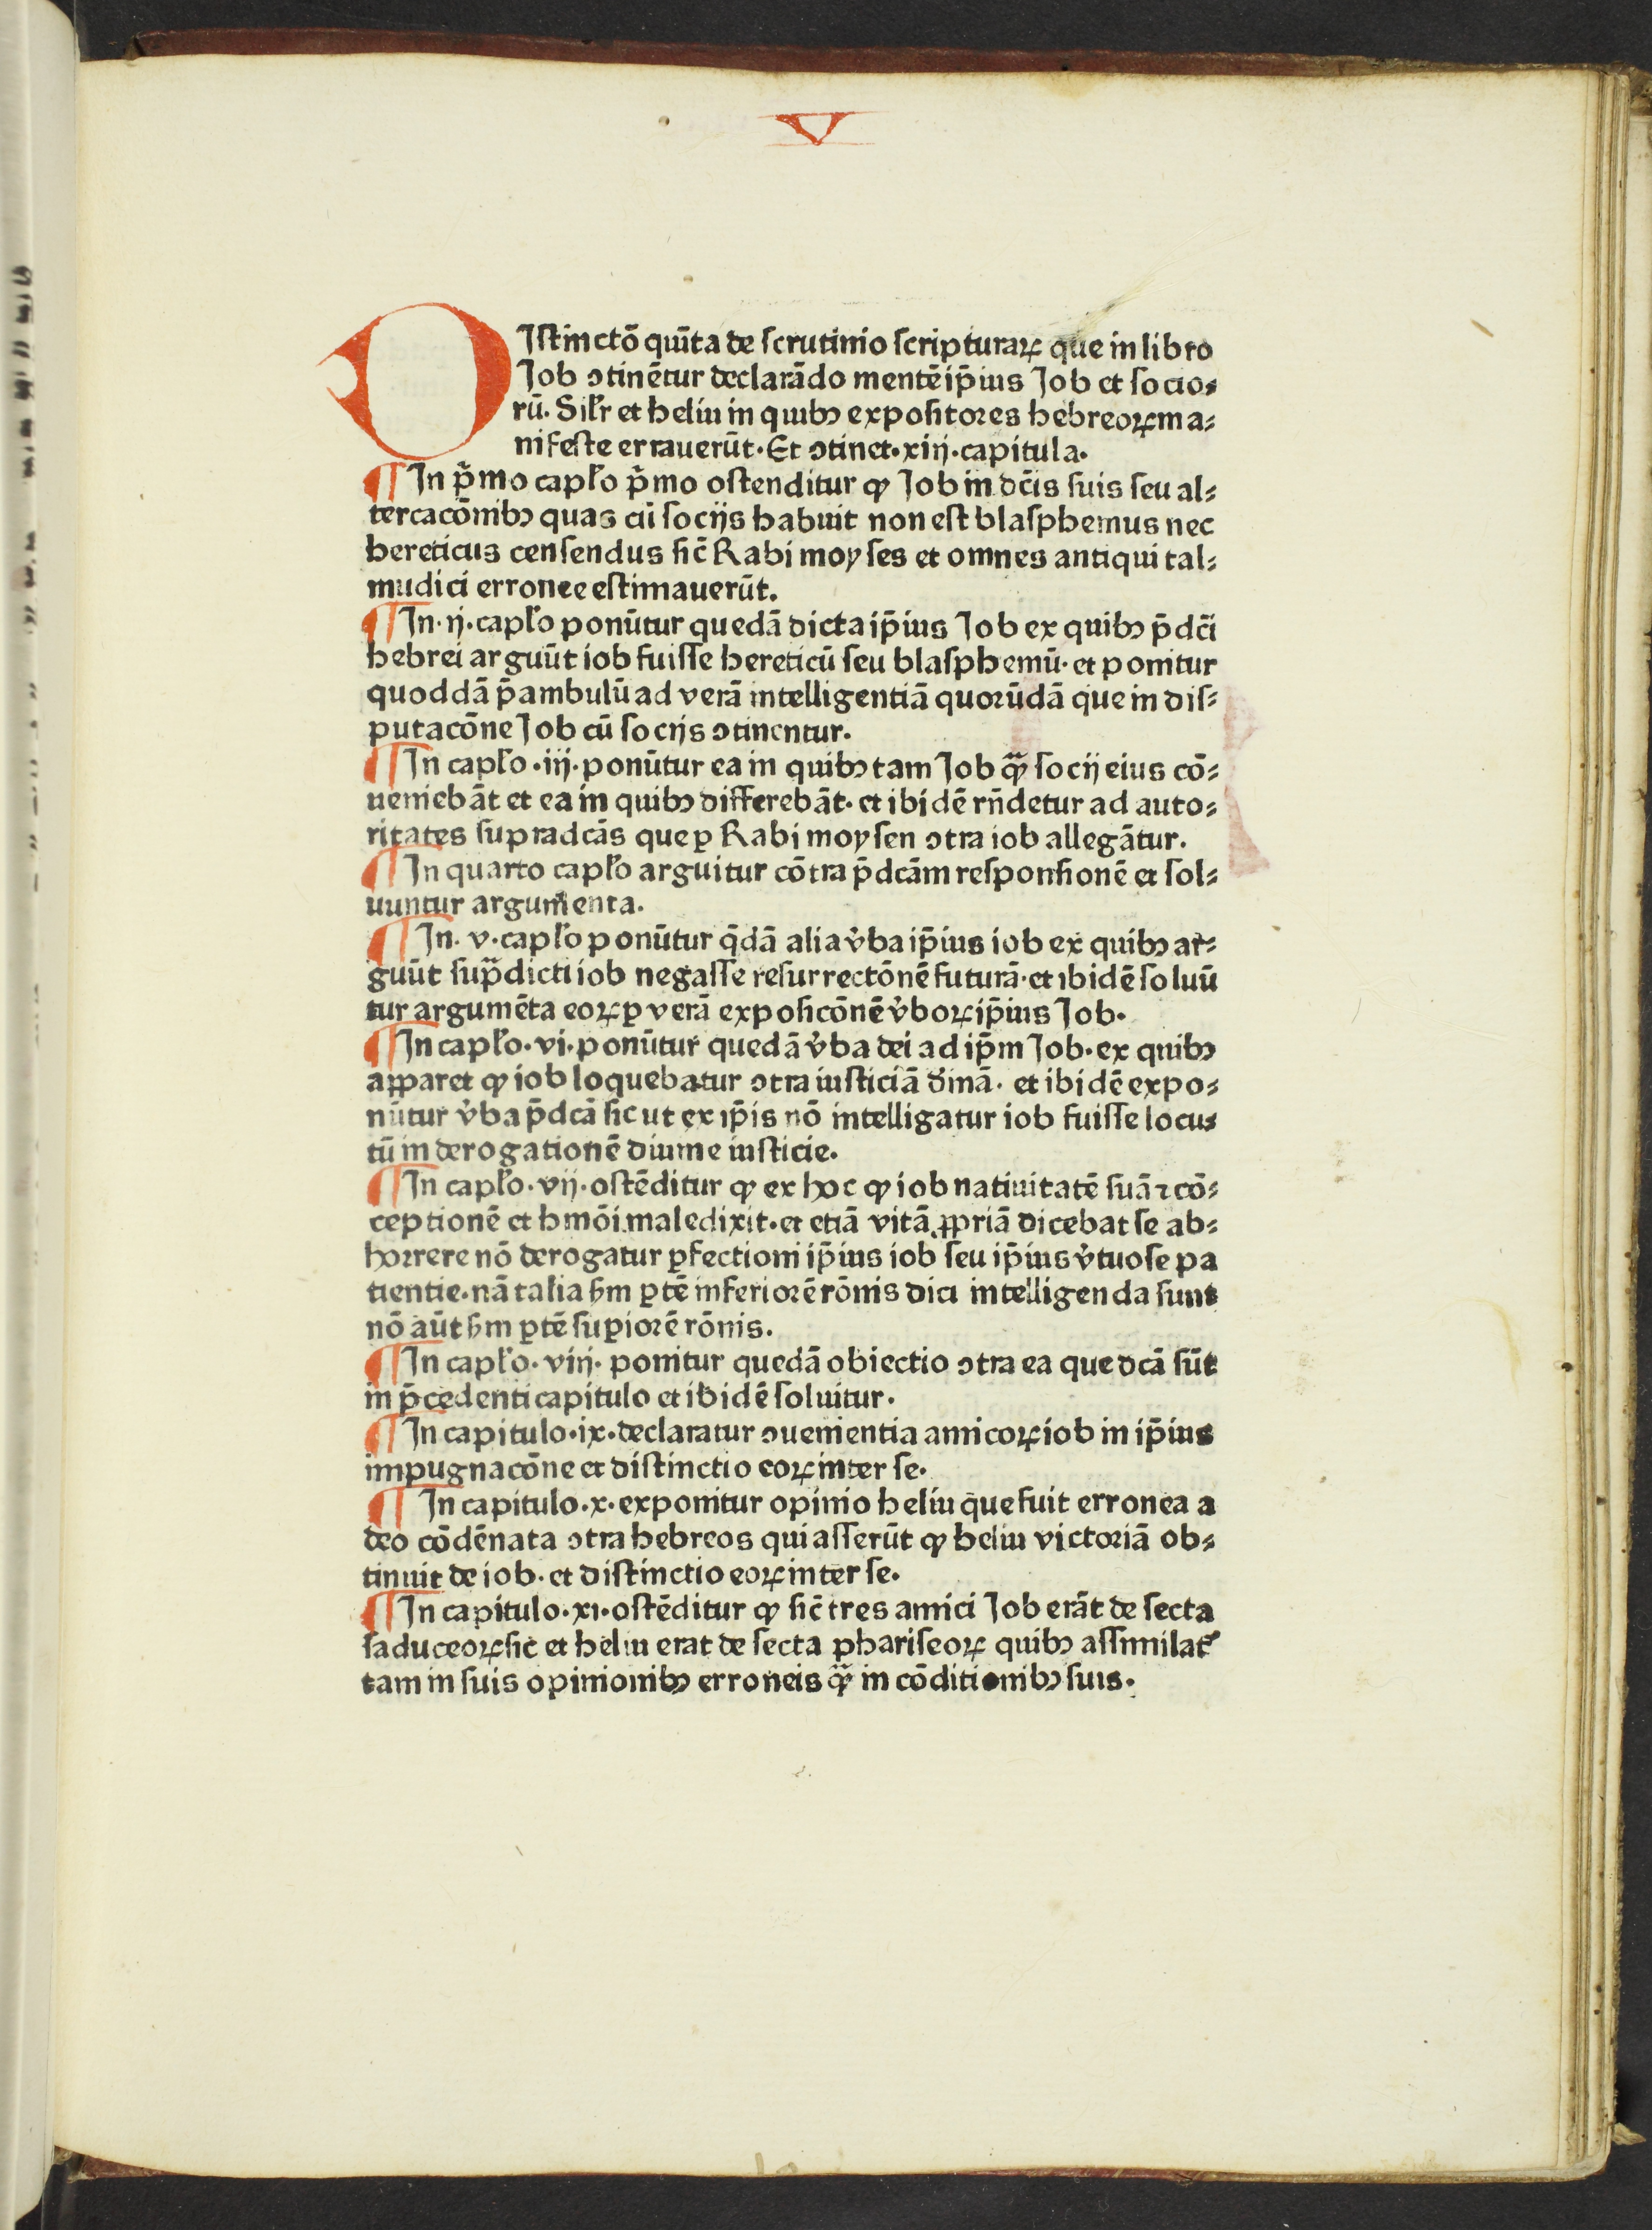 V
DIstinctō quīta de scrutinio scripturaꝝ que in libro
Job ↄtinētur declarādo mentē ip̄ius Job et socio⸗
rū. Silr̄ et heliu in quibꝫ expositores hebreoꝝ ma⸗
nifeste errauerūt. Et ↄtinet. xiij. capitula.
¶ In p̄mo capl̓o p̄mo ostenditur ꝙ Job in dc̄is suis seu al⸗
tercacōnibꝫ quas cū socijs habuit non est blasphemus nec
hereticus censendus sic̄ Rabi moyses et omnes antiqui tal⸗
mudici erronee estimauerūt.
¶ In. ij. capl̓o ponūtur quedā dicta ip̄ius Job ex quibꝫ p̄dc̄i
hebrei arguūt iob fuisse hereticū seu blasphemū. et ponitur
quoddā p̄ambulū ad verā intelligentiā quorūdā que in dis⸗
putacōne Job cū socijs ↄtinentur.
¶ In capl̓o .iij. ponūtur ea in quibꝫ tam Job qᷓꝫ socij eius cō⸗
ueniebāt et ea in quibꝫ differebāt. et ibidē rn̄detur ad auto⸗
ritates supradcās que ꝑ Rabi moysen ↄtra iob allegātur.
¶ In quarto capl̓o arguitur cōtra p̄dcām responsionē et sol⸗
uuntur argum̄enta.
¶ In. v. capl̓o ponūtur q̄dā alia v̓ba ip̄ius iob ex quibꝫ ar⸗
guūt sup̄dicti iob negasse resurrectōnē futurā. et ibidē soluū
tur argumēta eoꝝ ꝑ verā exposicōnē v̓boꝝ ip̄ius Job.
¶ In capl̓o. vi. ponūtur quedā v̓ba dei ad ip̄m Job. ex quibꝫ
apparet ꝙ iob loquebatur ↄtra iusticiā diīnā. et ibidē expo⸗
nūtur v̓ba p̄dcā sic ut ex ip̄is nō intelligatur iob fuisse locu⸗
tū in derogationē diuine iusticie.
¶ In capl̓o. vij. ostēditur ꝙ ex hoc ꝙ iob natiuitatē suā ⁊ cō⸗
ceptionē et hmōi maledixit. et etiā vitā ꝓpriā dicebat se ab⸗
horrere nō derogatur ꝑfectioni ip̄ius iob seu ip̄ius v̓tuose pa
tientie. nā talia ẜm ꝑtē inferiorē rōnis dici intelligenda sunt
nō aūt ẜm ꝑtē suꝑiorē rōnis.
¶ In capl̓o. viij. ponitur quedā obiectio ↄtra ea que dcā sūt
in p̄cedenti capitulo et ibidē soluitur.
¶ In capitulo. ix. declaratur ↄuenientia amicoꝝ iob in ip̄ius
impugnacōne et distinctio eoꝝ inter se.
¶ In capitulo. x. exponitur opinio heliu que fuit erronea a
deo cōdēnata ↄtra hebreos qui asserūt ꝙ heliu victoriā ob⸗
tinuit de iob. et distinctio eoꝝ inter se.
¶ In capitulo. xi. ostēditur ꝙ sic̄ tres amici Job erāt de secta
saduceoꝝ sic et heliu erat de secta phariseoꝝ quibꝫ assimilat̉
tam in suis opinionibꝫ erroneis qᷓꝫ in cōditionibꝫ suis.